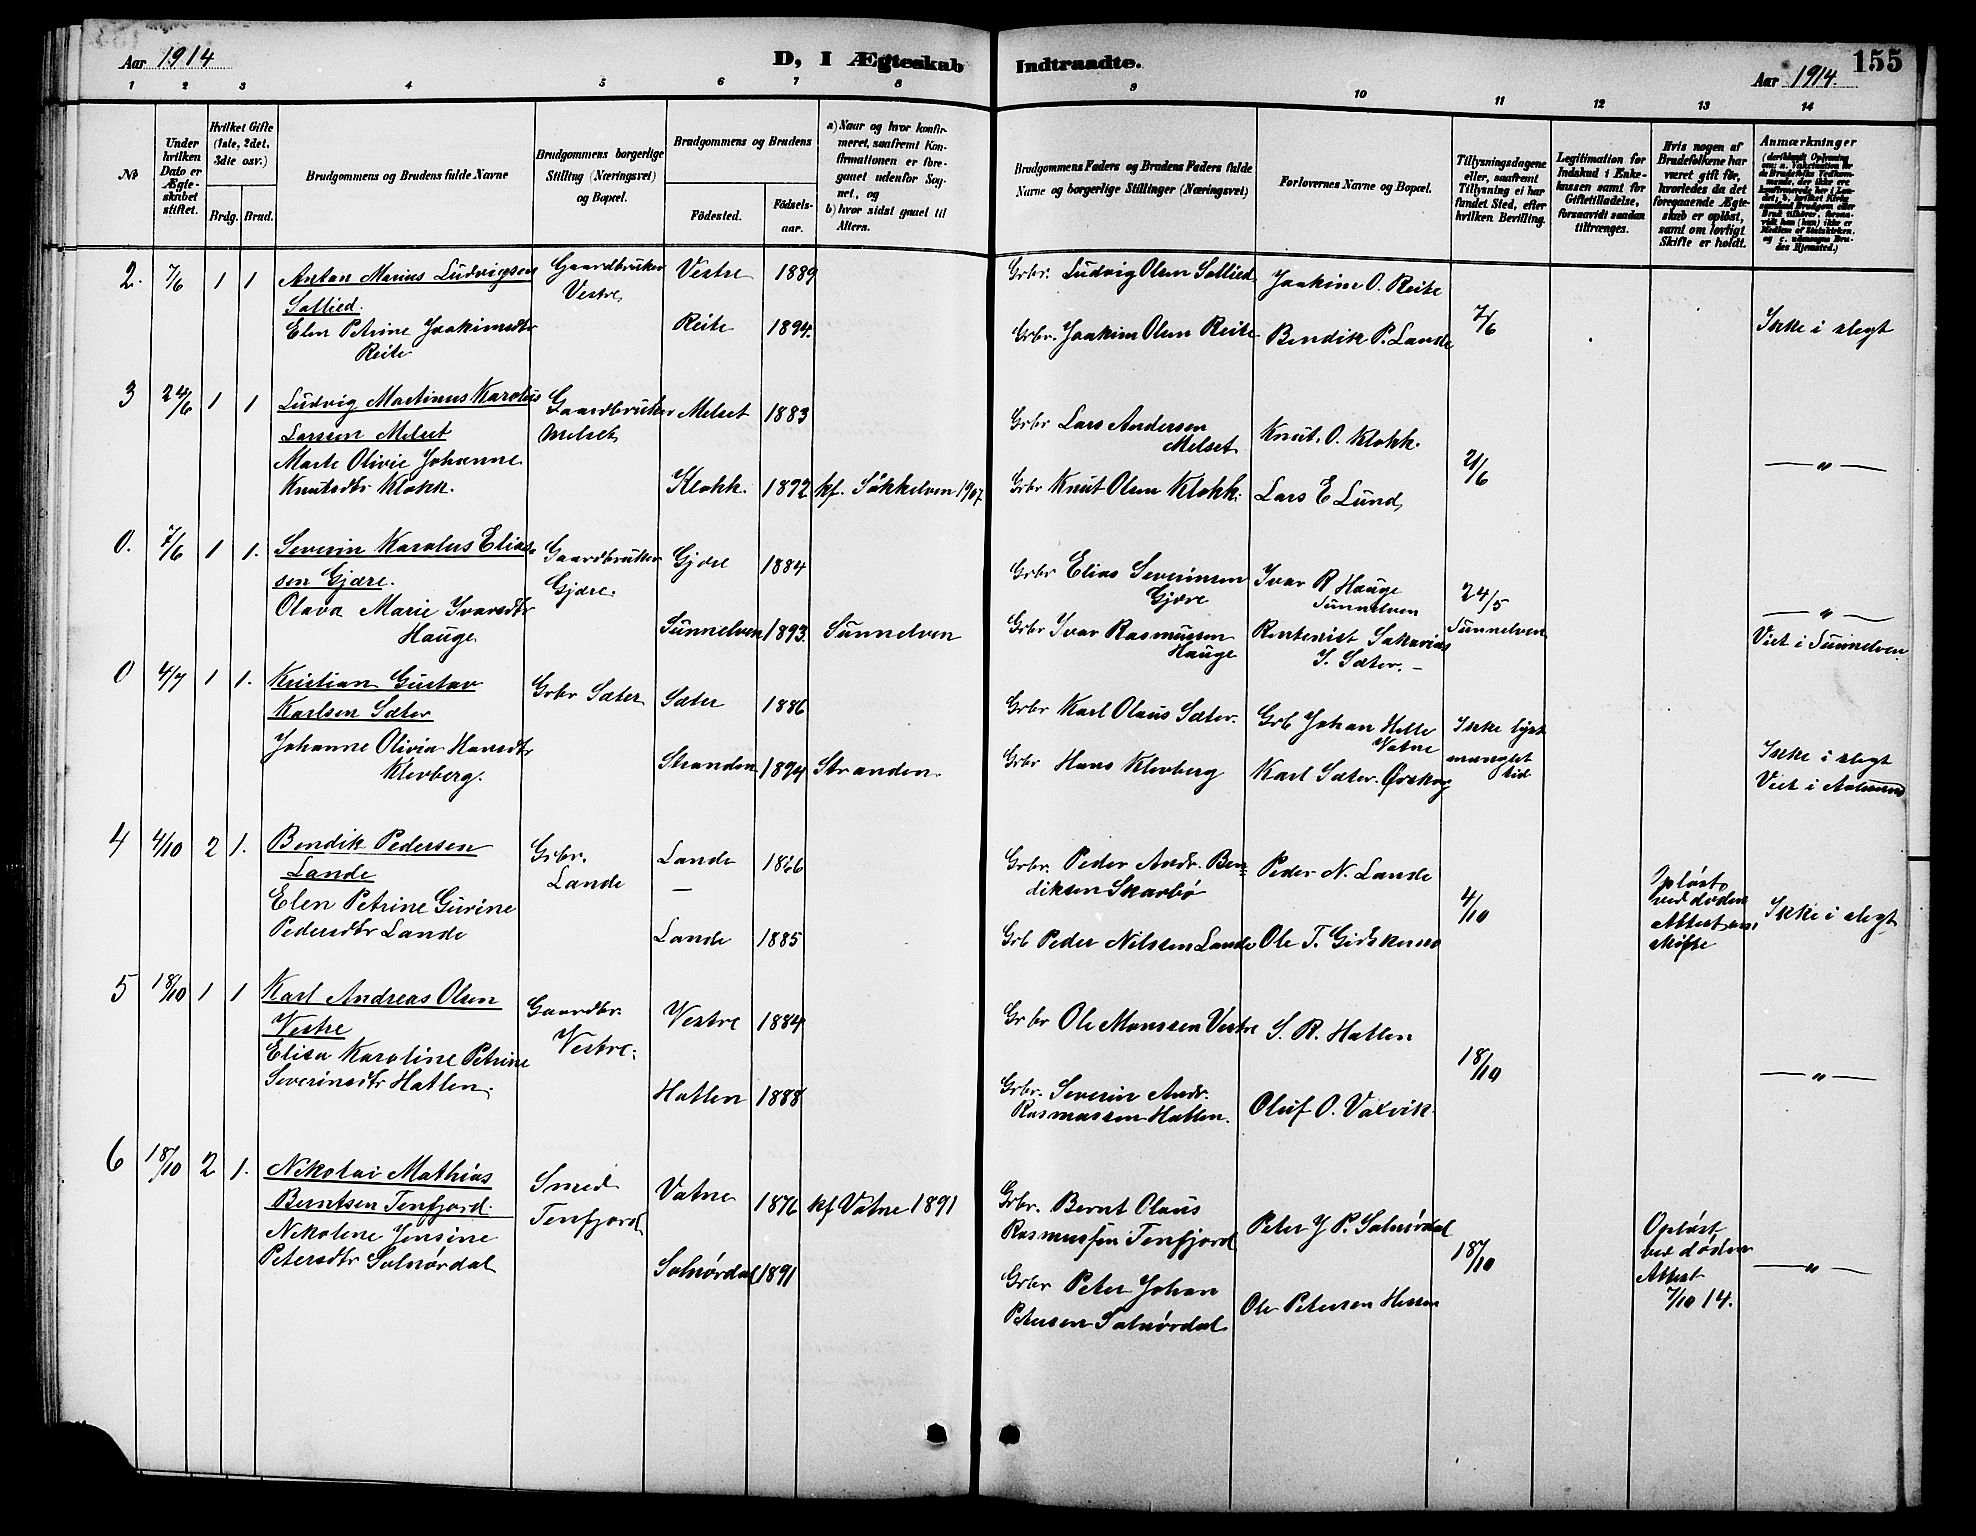 Aar 1914
D, I Ægteskab
Indtraadte.
Aar 1914.
155
1 2 3 4 5 6 7 8
9 10 11 12 13 14
No
Under hvilken Dato er Ægteskabet stiftet.
Hvilket Gifte (1ste, 2det, 3die osv.)
Brdg. Brud.
Brudgommens og Brudens fulde Navne
Brudgommens borgerlige Stilling (Næringsvei) og Bopæl.
Brudgommens og Brudens
Födested.
Födselsaar.
a) Naar og hvor konfirmeret, saafremt Konfirmationen er foregaaet udenfor Sognet, og
b) hvor sidst gaaet til Alters.
Brudgommens Faders og Brudens Faders fulde Navne og borgerlige Stillinger (Næringsvei)
Forlovernes Navne og Bopæl.
Tillysningsdagene eller, saafremt Tillysning ei har fundet Sted, efter hvilken Bevilling.
Legitimation for Indskud i Enkekassen samt for Giftetilladelse, forsaavidt saadan tiltrænges.
Hvis nogen af Brudefolkene har været gift før, hvorledes da det foregaaende Ægteskab er opløst, samt om lovligt Skifte er holdt.
Anmærkninger
2. 7/6 1 1 Anton Marius Ludvigsen
Sollied.
Elen Petrine Joakimsdtr
Reite
Gaardbruker
Vestre
Vestre 1889
Reite 1894.
Grbr. Ludvig Olsen Sollied
Grbr. Joakim Olsen Reite
Joakim O. Reite
Bendik P. Lande
7/6
Ikke i slegt
3 24/6 1 1 Ludvig Martinus Karolus
Larssen Melset
Marte Olivie Johanne
Knutsdtr Klokk.
Gaardbruker
Melset
Melset 1883
Klokk. 1892 kf. Søkkelven 1907.
Grbr Lars Andersen
Melset
Grbr Knut Olsen Klokk.
Knut. O. Klokk.
Lars E Lund
21/6
— " —
0. 7/6 1 1. Severin Karolus Elias-
sen Gjære.
Olava Marie Ivarsdtr
Hauge.
Gaardbruker
Gjære.
Gjære 1884
Sunnelven 1893. Sunnelven
Grbr Elias Severinsen
Gjære
Grbr Ivar Rasmussen
Hauge
Ivar R Hauge
Sunnelven
Rentenist Sakarias
S. Sæter. –
24/5
Sunnelven
— " —
Viet i Sunnelven.
0 4/7 1 1. Kristian Gustav
Karlsen Sæter
Johanne Olivia Hansdtr
Klevberg.
Grbr Sæter
Sæter 1886
Stranden 1894 Stranden.
Grbr Karl Olaus Sæter.
Grbr Hans Klevberg
Grb Johan Helle
Vatne
Karl Sæter. Ørskog
Ikke lyst
manglet
tid
Ikke i slegt
Viet i Aalesund
4 4/10 2 1. Bendik Pedersen
Lande
Elen Petrine Gurine
Pedersdtr Lande
Grbr.
Lande
Lande 1866
—
Lande 1885
Grbr. Peder Andr. Ben-
diksen Skarbø
Grb Peder Nilssen Lande
Peder N. Lande
Ole T. Gidskemo
4/10
Opløst
ved døden
Attest om
skifte
Ikke i slegt
5 18/10 1 1 Karl Andreas Olsen
Vestre
Elisa Karoline Petrine
Severinsdtr Hatlen.
Gaardbr.
Vestre.
Vestre 1884
Hatlen 1888
Grbr Ole Monssen Vestre
Grbr. Severin Andr.
Rasmussen Hatlen.
S. R. Hatlen
Oluf O. Vaxvik
18/10
— " —
6 18/10 2 1. Nikolai Mathias
Berntsen Tenfjord.
Nikoline Jensine
Petersdtr Solnørdal
Smed
Tenfjord
Vatne 1876 kf Vatne 1891
Solnørdal 1891
Grbr. Bernt Olaus
Rasmussen Tenfjord
Grbr Peter Johan
Petersen Solnørdal
Peter J P. Solnørdal
Ole Petersen Hessen
18/10
Opløst
ved døden
Attest
7/10 14.
— " —